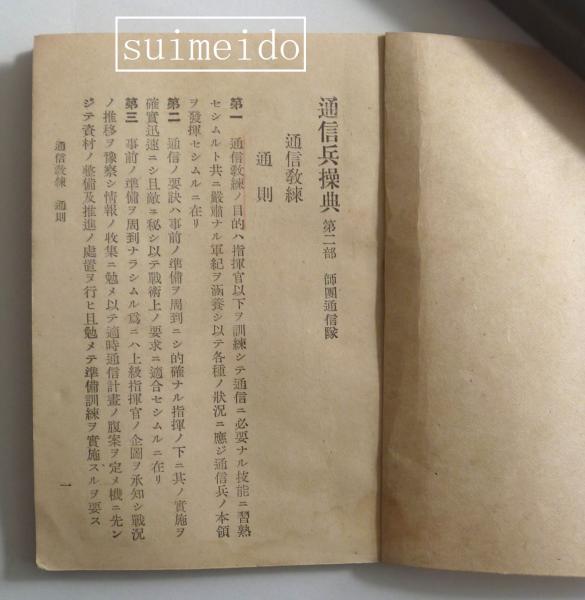 suimeido
通信兵操典 第二部 師團通信隊
通信敎練
通則
第一 通信敎練ノ目的ハ指揮官以下ヲ訓練シテ通信ニ必要ナル技能ニ習熟
セシムルト共ニ嚴肅ナル軍紀ヲ涵養シ以テ各種ノ狀況ニ應ジ通信兵ノ本領
ヲ發揮セシムルニ在リ
第二 通信ノ要訣ハ事前ノ準備ヲ周到ニシ的確ナル指揮ノ下ニ其ノ實施ヲ
確實迅速ニシ且敵ニ秘シ以テ戰術上ノ要求ニ適合セシムルニ在リ
第三 事前ノ準備ヲ周到ナラシムル爲ニハ上級指揮官ノ企圖ヲ承知シ戰況
ノ推移ヲ豫察シ情報ノ收集ニ勉メ以テ適時通信計畫ノ腹案ヲ定メ機ニ先ン
ジテ資材ノ整備及推進ノ處置ヲ行ヒ且勉メテ準備訓練ヲ實施スルヲ要ス
通信敎練 通則
一